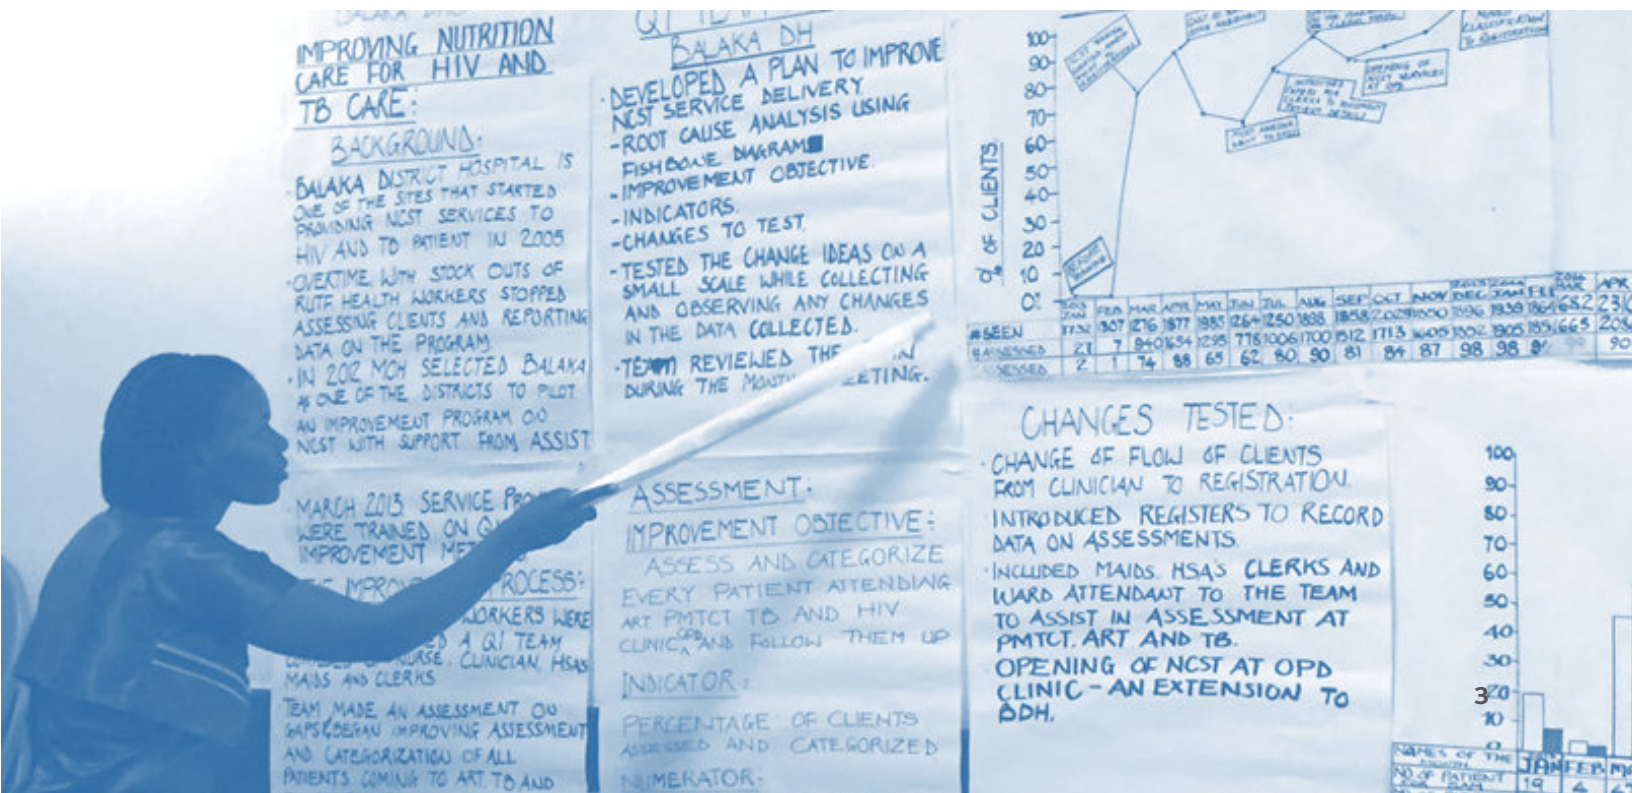 IMPROVING NUTRITION
CARE FOR HIV AND
TB CARE:
BACKGROUND:
· BALAKA DISTRICT HOSPITAL IS
ONE OF THE SITES THAT STARTED
PROVIDING NCST SERVICES TO
HIV AND TO PATIENT IN 2005
· OVERTIME, WITH STOCK OUTS OF
RUTF HEALTH WORKERS STOPPED
ASSESSING CLIENTS AND REPORTING
DATA ON THE PROGRAM
· IN 2012 MOH SELECTED BALAKA
AS ONE OF THE DISTRICTS TO PILOT
AN IMPROVEMENT PROGRAM ON
NCST WITH SUPPORT FROM ASSIST
MARCH 2013 SERVICE
WERE TRAINED ON
IMPROVEMENT
PROCESS:
WORKERS WERE
A QI TEAM
NURSE, CLINICIAN, HSAs
MAIDS AND CLERKS
TEAM MADE AN ASSESSMENT ON
GAPS & BEGAN IMPROVING ASSESSMENT
AND CATEGORIZATION OF ALL
PATIENTS COMING TO ART TB AND
BALAKA DH
· DEVELOPED A PLAN TO IMPROVE
NCST SERVICE DELIVERY
- ROOT CAUSE ANALYSIS USING
FISHBONE DIAGRAM
- IMPROVEMENT OBJECTIVE.
- INDICATORS.
- CHANGES TO TEST.
- TESTED THE CHANGE IDEAS ON A
SMALL SCALE WHILE COLLECTING
AND OBSERVING ANY CHANGES
IN THE DATA COLLECTED.
· TEAM REVIEWED THE
DURING THE
ASSESSMENT:
IMPROVEMENT OBJECTIVE:
ASSESS AND CATEGORIZE
EVERY PATIENT ATTENDING
ART PMTCT TB AND HIV
CLINIC, OPD AND FOLLOW THEM UP
INDICATOR:
PERCENTAGE OF CLIENTS
ASSESSED AND CATEGORIZED
NUMERATOR:
% OF CLIENTS.
100
90
80
70
60
50
40
30
20
10
0
OPENING OF
NCST SERVICES
AT OPD
TO REGISTRATION
JAN FEB MAR APR MAY JUN JUL AUG SEP OCT NOV DEC JAN FEB MAR APR
# SEEN 1732 307 1276 1877 1985 1264 1250 1888 1858 2029 1850 1896 1939 682
# ASSESSED 21 7 940 1634 1295 778 1006 1700 1512 1713 1605 1905 665
ASSESSED 2 1 74 88 65 62 80 90 81 84 87 98 98 90
CHANGES TESTED:
· CHANGE OF FLOW OF CLIENTS
FROM CLINICIAN TO REGISTRATION.
· INTRODUCED REGISTERS TO RECORD
DATA ON ASSESSMENTS.
· INCLUDED MAIDS, HSA'S CLERKS AND
WARD ATTENDANT TO THE TEAM
TO ASSIST IN ASSESSMENT AT
PMTCT, ART AND TB.
· OPENING OF NCST AT OPD
CLINIC - AN EXTENSION TO
BDH.
100
90
80
70
60
50
40
30
20
10
0
3
NAMES OF THE
MONTH JAN FEB
NO OF PATIENT 19 4